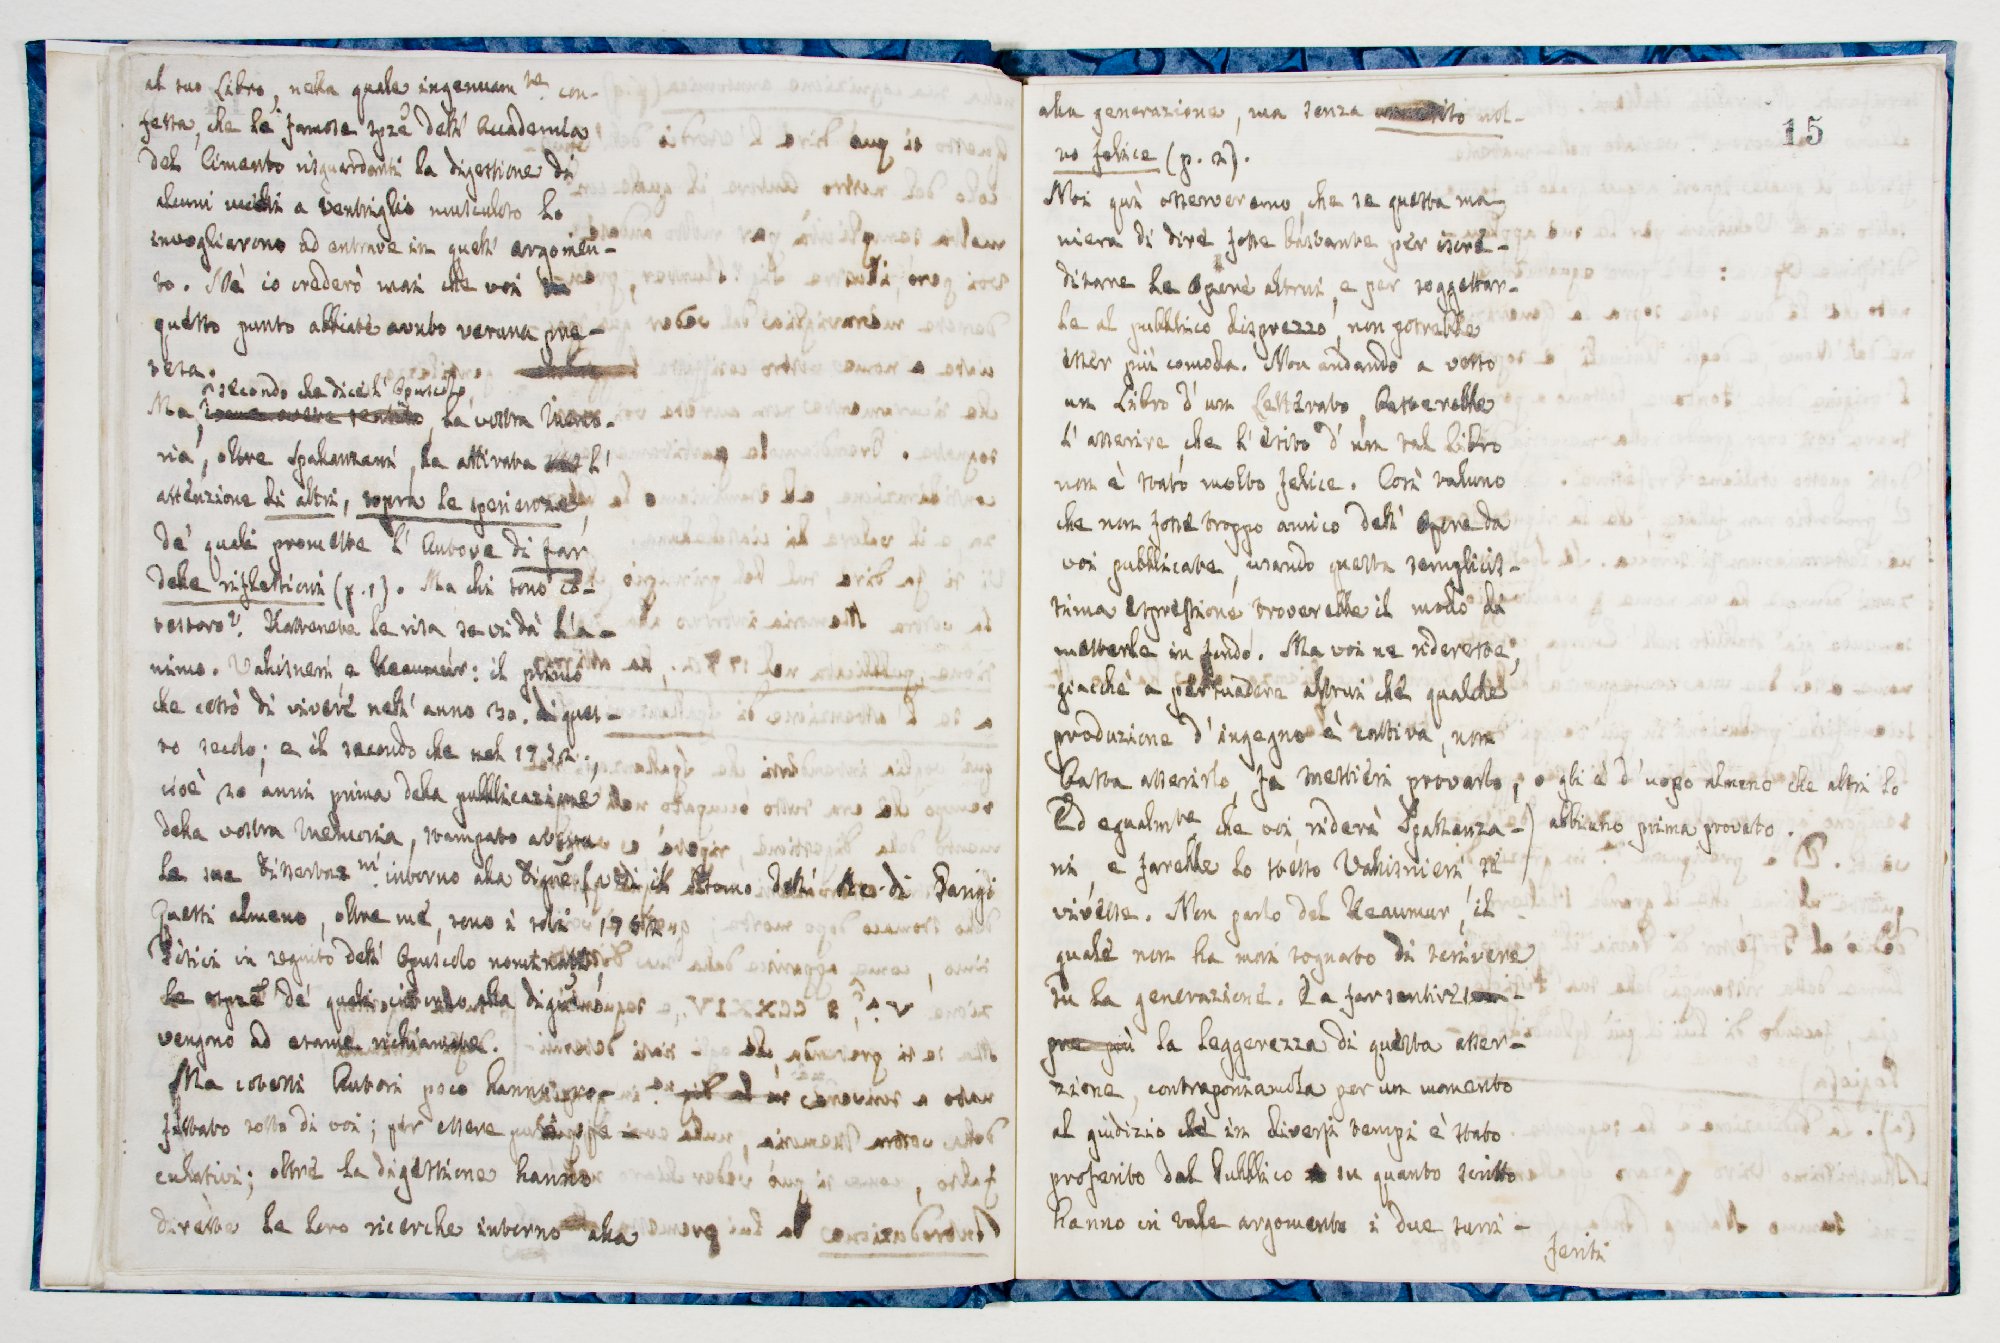 al suo Libro, nella quale ingenuam.te con-
fessa, che le famose spze dell' Accademia
del Cimento risguardanti la digestione di
alcuni uccelli a ventriglio muscoloso lo
invogliarono ad entrare in quell' argomen-
to. Nè io crederò mai che voi
questo punto abbiate avuto veruna pre-
tesa.
secondo che dice l' Opuscolo,
Ma, la vostra Memo-
ria, oltre Spallanzani, ha attirata l'
attenzione di altri, sopra le sperienze
de' quali promette l' Autore di far
delle riflessioni (p. 1). Ma chi sono co-
testoro? Trattenete le risa se vi dà l'a-
nimo. Valisneri e Reaumur: il primo
che cessò di vivere nell' anno 30. di ques-
to secolo; e il secondo che nel 1752.,
cioè 20 anni prima della pubblicazione
della vostra Memoria, stampato aveva
le sue Dissertaz.ni intorno alla Digne
Tomo dell' Ac. di Parigi
Questi almeno, oltre me, sono i soli
1752.
Fisici in seguito dell' Opuscolo nominati,
le spze de' quali alla digne
vengono ad esame richiamate.
Ma cotesti Autori poco hanno pro-
fittato sotto di voi; per essere
culativi; oltre la digestione hanno
dirette le loro ricerche intorno alla
15
alla generazione, ma senza esito mol-
to felice (p. 2).
Noi quì osserveremo, che se questa ma-
niera di dire fosse bastante per iscre-
ditare le Opere altrui, e per soggettar-
le al pubblico disprezzo, non potrebbe
esser più comoda. Non andando a verso
un Libro d' un Letterato, basterebbe
l' asserire che l' esito d' un tal libro
non è stato molto felice. Così taluno
che non fosse troppo amico dell' Opere da
voi pubblicate, usando questa semplicis-
sima espressione troverebbe il modo da
metterle in fondo. Ma voi ne ridereste,
giacchè a persuadere altrui che qualche
produzione d' ingegno è cattiva, non
basta asserirlo, fa mestieri provarlo, o gli è d' uopo almeno che altri lo
abbiano prima provato.
Ed egualm.te che voi riderà Spallanza-
ni e farebbe lo stesso Valisnieri se
vivesse. Non parlo del Reaumur, il
quale non ha mai sognato di scrivere
su la generazione. E a far sentir
pre più la leggerezza di questa asser-
zione, contrapponiamola per un momento
al giudizio che in diversi tempi è stato
proferito dal Pubblico su quanto scritto
hanno in tale argomento i due surri-
feriti